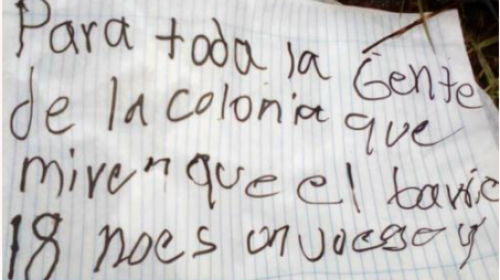 Para toda la Gente
de la colonia que
miren que el barrio
18 noes un juego y